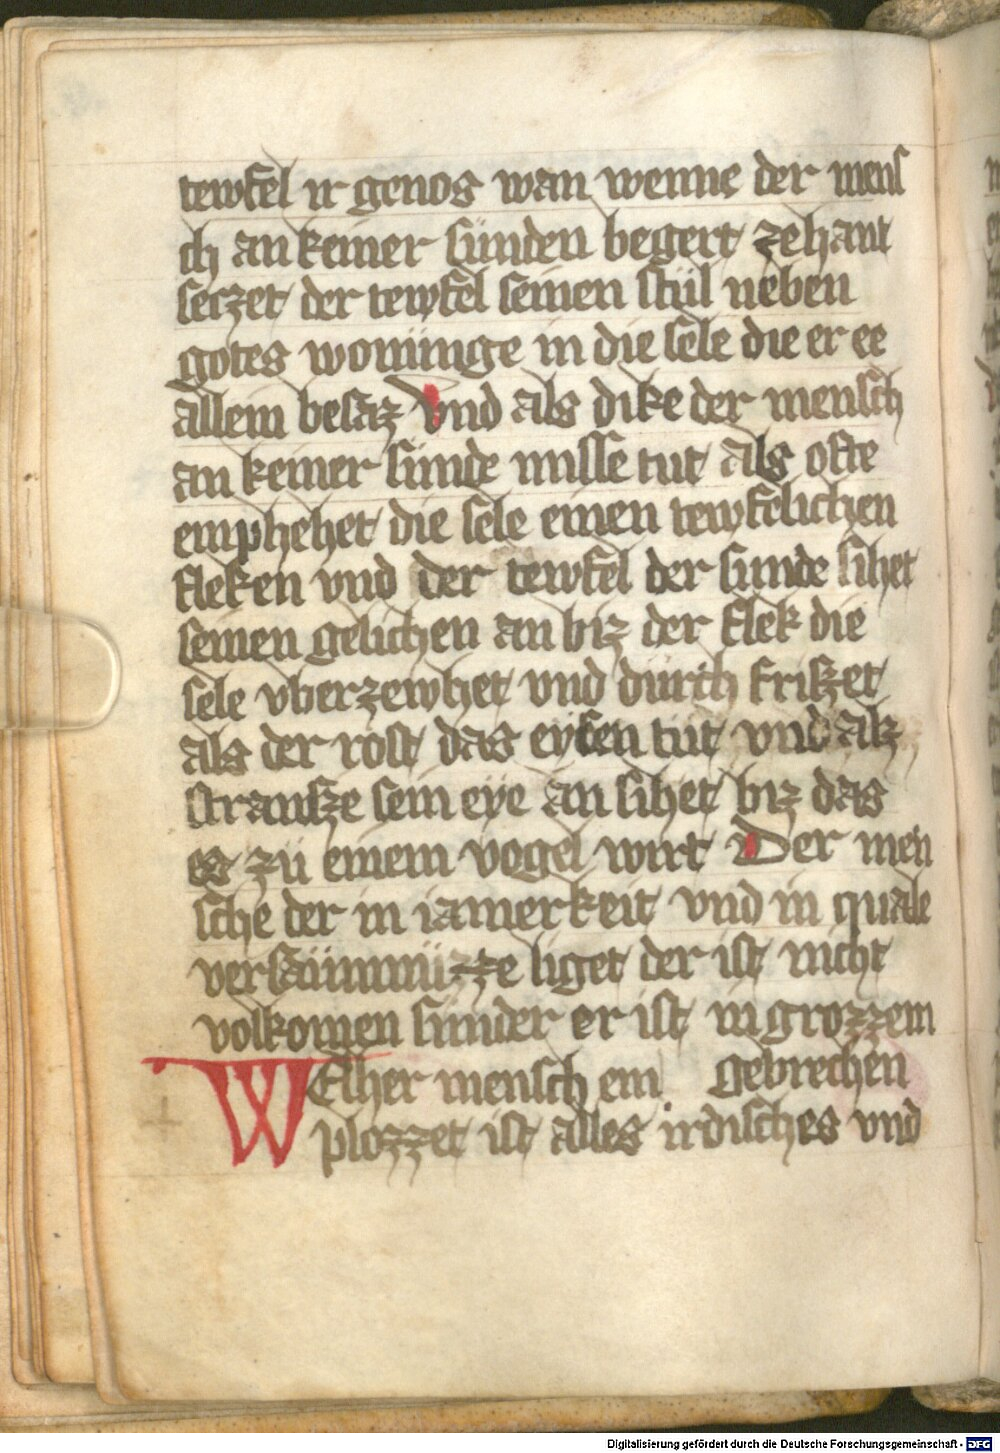 tewfel ir genos wan wenne der mens
ch an keiner sünden begert zehant
seczet der tewfel seinen stül neben
gotes wonünge in die sele die er ee
allein besaz Vnd als dike der mensch
an keiner sünde misse tut als ofte
emphehet die sele einen tewfelichen
fleken vnd der tewfel der sunde sihet
seinen gelichen an biz der flek die
sele vberzewhet vnd dürch frizzet
als der rost das eysen tut vnd alz
strauzze sein eye an sihet biz das
es zü einem vogel wirt Der men
sche der in iamerkeit vnd in quale
versaümnüzze liget der ist nicht
volkomen sünder er ist in grozzem
Gebrechen
WElher mensch em
plozzet ist alles irdisches vnd
Digitalisierung gefördert durch die Deutsche Forschungsgemeinschaft - DFG